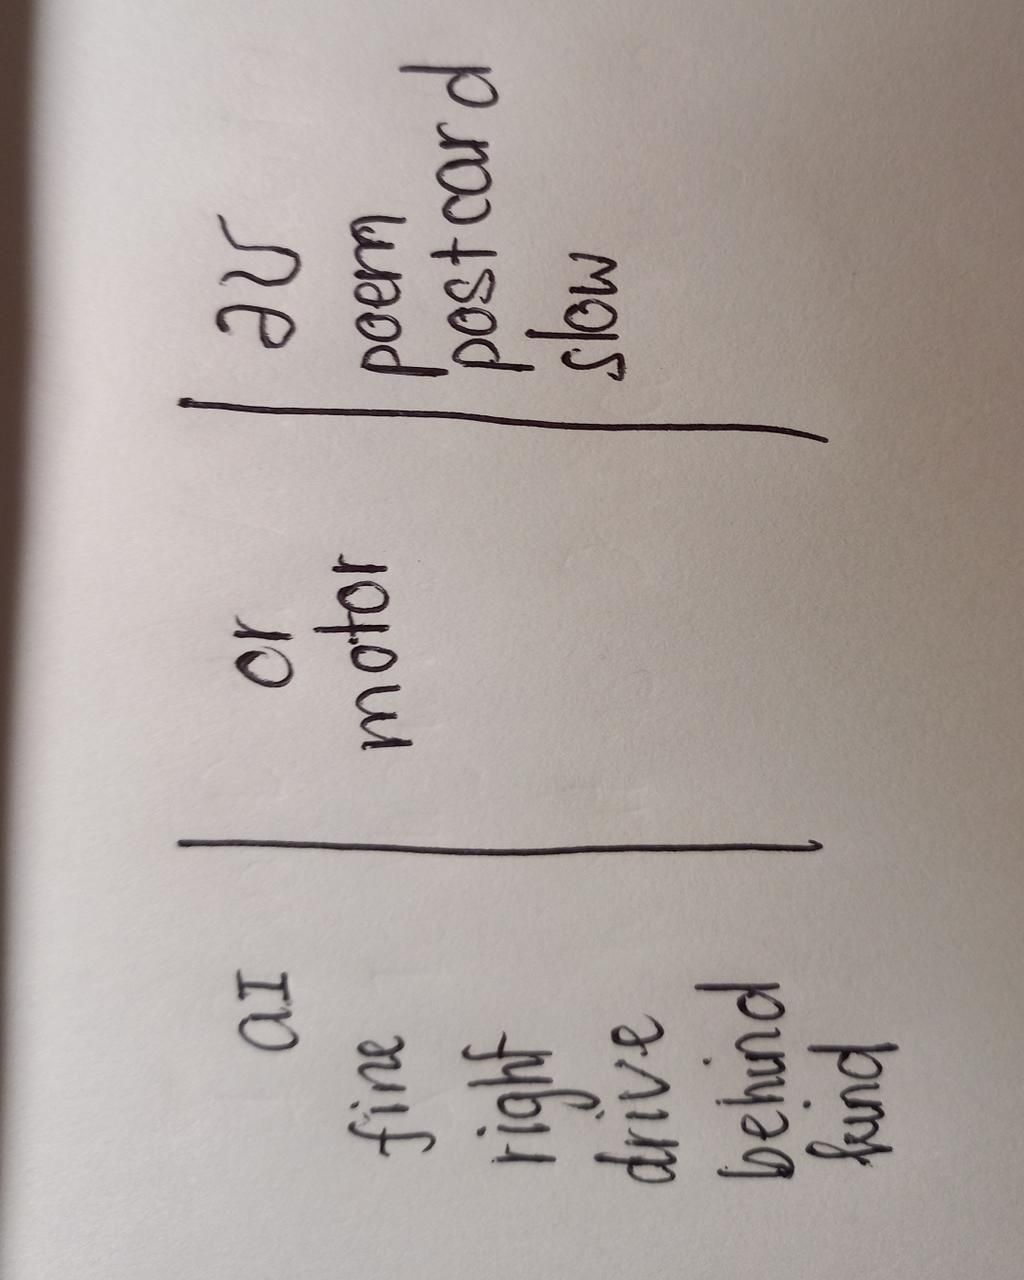 aɪ
fine
right
drive
behind
kind
or
motor
əʊ
poem
postcard
slow